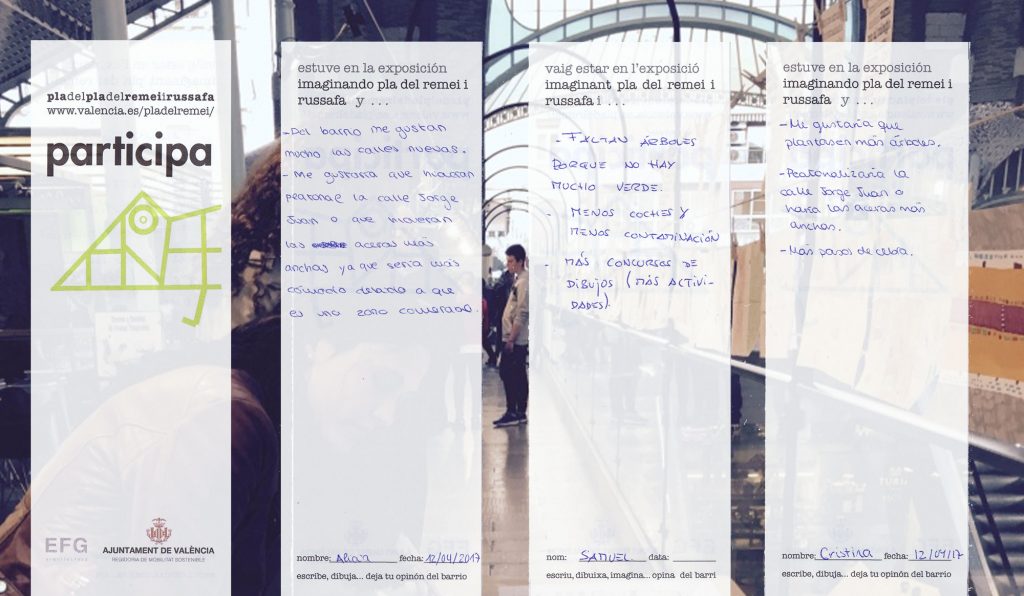 pladelpladelremeiirussafa
www.valencia.es/pladelremei/
participa
EFG
arquitectura
AJUNTAMENT DE VALÈNCIA
REGIDORIA DE MOBILITAT SOSTENIBLE
estuve en la exposición
imaginando pla del remei i
russafa y ...
- Del barrio me gustan
mucho las calles nuevas.
- Me gustaría que hicieran
peatonal la calle Jorge
Juan o que hicieran
las aceras más
anchas ya que sería más
cómodo debido a que
es una zona comercial.
nombre: Alicia fecha: 12/04/2017
escribe, dibuja... deja tu opinón del barrio
vaig estar en l'exposició
imaginant pla del remei i
russafa i ...
- FALTAN ÁRBOLES
PORQUE NO HAY
MUCHO VERDE.
- MENOS COCHES Y
MENOS CONTAMINACIÓN
- MÁS CONCURSOS DE
DIBUJOS (MÁS ACTIVI-
DADES)
nom: SAMUEL data:
escriu, dibuixa, imagina... opina del barri
estuve en la exposición
imaginando pla del remei i
russafa y ...
- Me gustaría que
plantasen más árboles.
- Peatonalizaría la
calle Jorge Juan o
haría las aceras más
anchas.
- Más pasos de cebra.
nombre: Cristina fecha: 12/04/17
escribe, dibuja... deja tu opinón del barrio